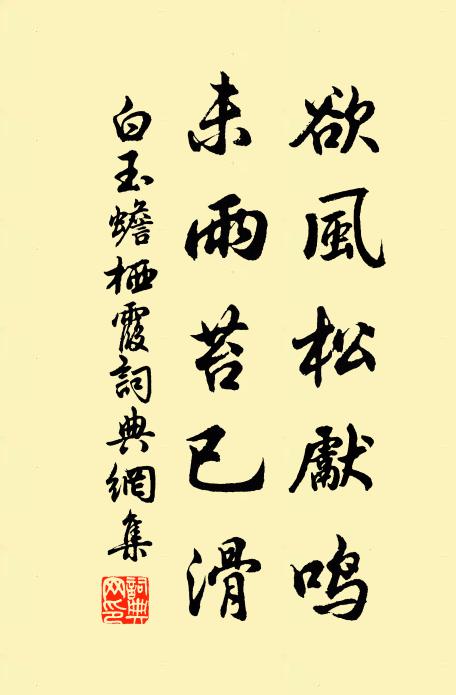 欲風松獻鳴
未雨苔已滑
白玉蟾栖霞詞典網集
詞典网印